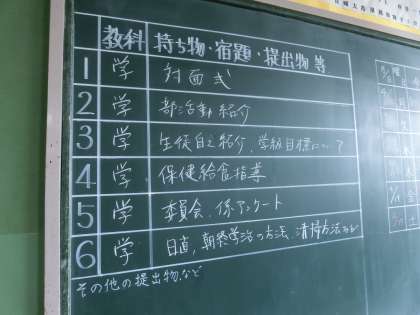 教科 持ち物・宿題・提出物 等
1 学 対面式
2 学 部活動紹介
3 学 生徒自己紹介、学級目標について
4 学 保健給食指導
5 学 委員会、係アンケート
6 学 日直、朝終学活の方法、清掃方法など
その他の提出物、など